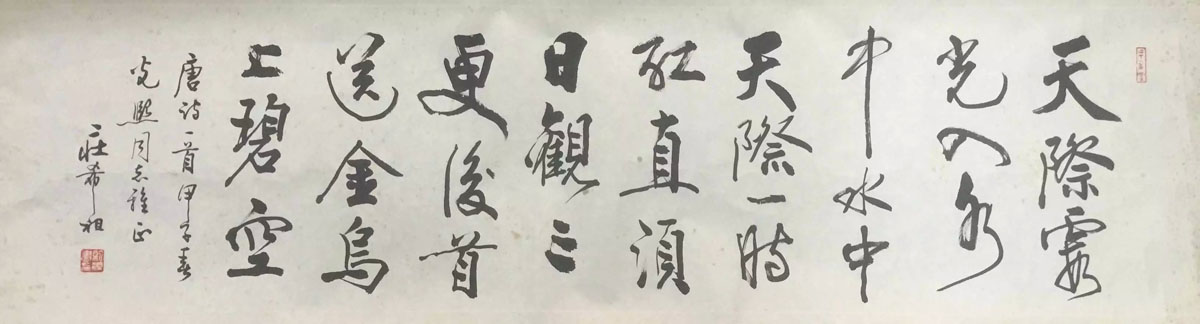 天際霞
光入水
中水中
天際一時
紅直須
日觀三
更後首
送金烏
上碧空
唐詩一首甲子春
光熙同志雅正
莊希祖